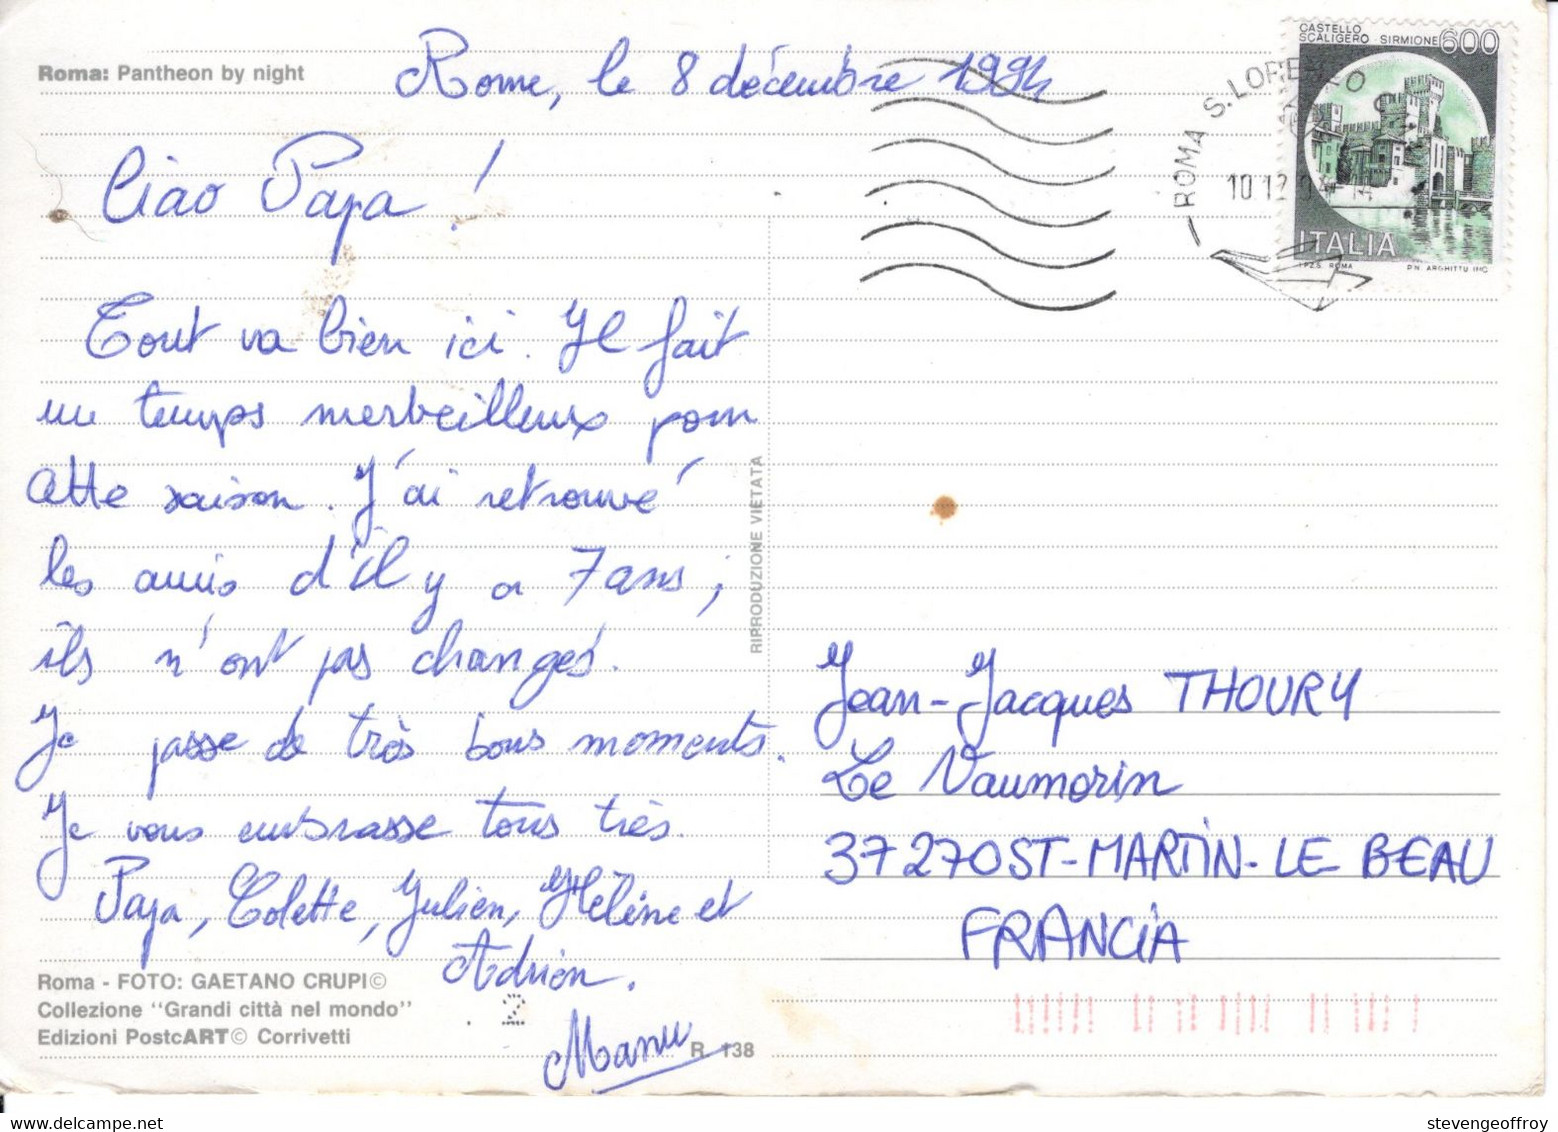 Roma: Pantheon by night
Rome, le 8 décembre 1994
Ciao Papa !
Tout va bien ici. Il fait
un temps merveilleux pour
cette saison. J'ai retrouvé
les amis d'il y a 7 ans ;
ils n'ont pas changés.
Je passe de très bons moments.
Je vous embrasse tous très.
Papa, Colette, Julien, Hélène et
Adrien.
Manu
Roma - FOTO: GAETANO CRUPI©
Collezione "Grandi città nel mondo"
Edizioni PostcART© Corrivetti
. 2
R. 138
RIPRODUZIONE VIETATA
CASTELLO
SCALIGERO SIRMIONE 600
ITALIA
I.P.Z.S. ROMA P.N. ARGHITTU INC.
ROMA S.LORENZO
10.12
Jean-Jacques THOURY
Le Vaumorin
37270 ST-MARTIN-LE BEAU
FRANCIA
stevengeoffroy